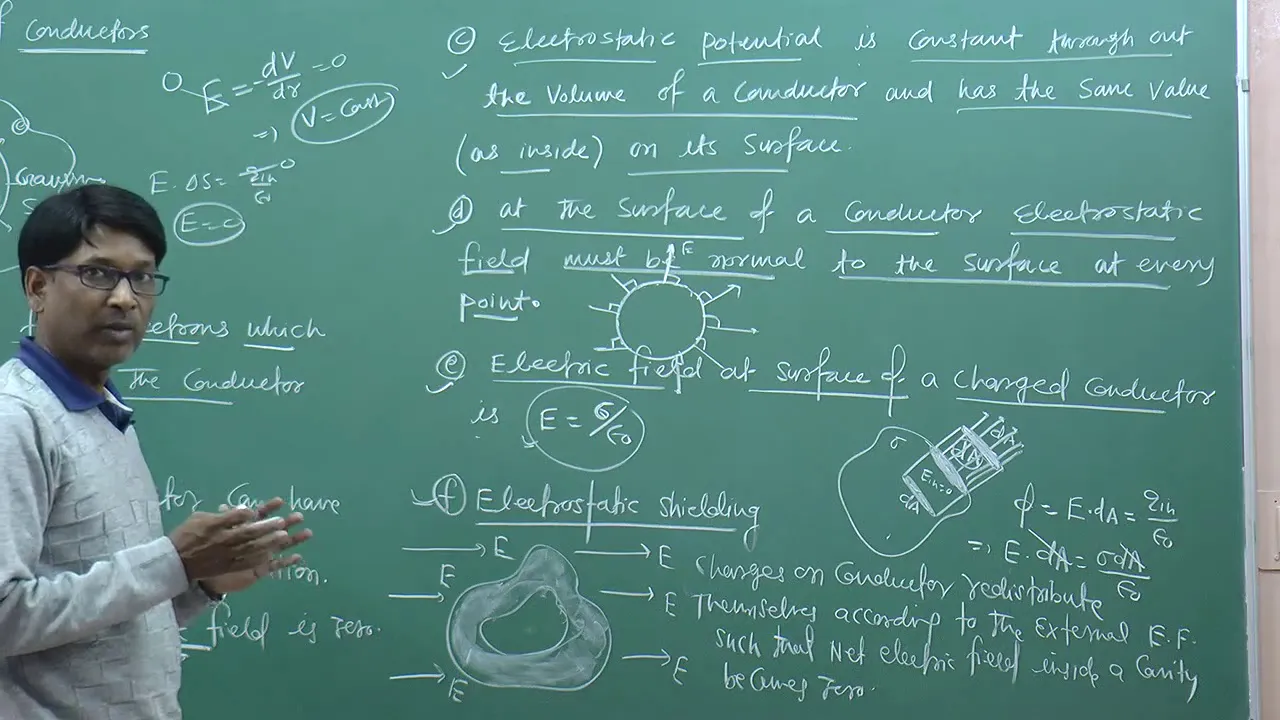 f Conductors
E = -dV/dr = 0
0
=> V = Const
Gaussian
S
E. ΔS = qin/ε0 0
E = 0
electrons which
the Conductor
Can have
field is zero.
(c) Electrostatic potential is Constant through out
the Volume of a Conductor and has the Same Value
(as inside) on its Surface.
(d) at the Surface of a Conductor Electrostatic
field must be normal to the Surface at every
point.
E
(e) Electric field at surface of a Charged Conductor
is E = σ/ε0
σ
dA
dA
Ein=0
dA
ϕ = E.dA = qin/ε0
=> E.dA = σdA/ε0
(f) Electrostatic shielding
E
E
E
E
E
E
Charges on Conductor redistribute
Themselves according to the external E.F.
such that Net electric field inside a Cavity
becomes zero.